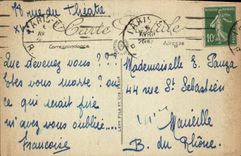 18 rue du Theatre
XV
PARIS
PARIS
AVRIL
Carte Postale
10c
Correspondance
Adresse
Que devenez vous ? ???
Etes vous morte ? ou
ce qui serait pire
m'avez vous oubliée...
Françoise
Mademoiselle E.
44 rue St Sebastien
Marseille
B. du Rhône.